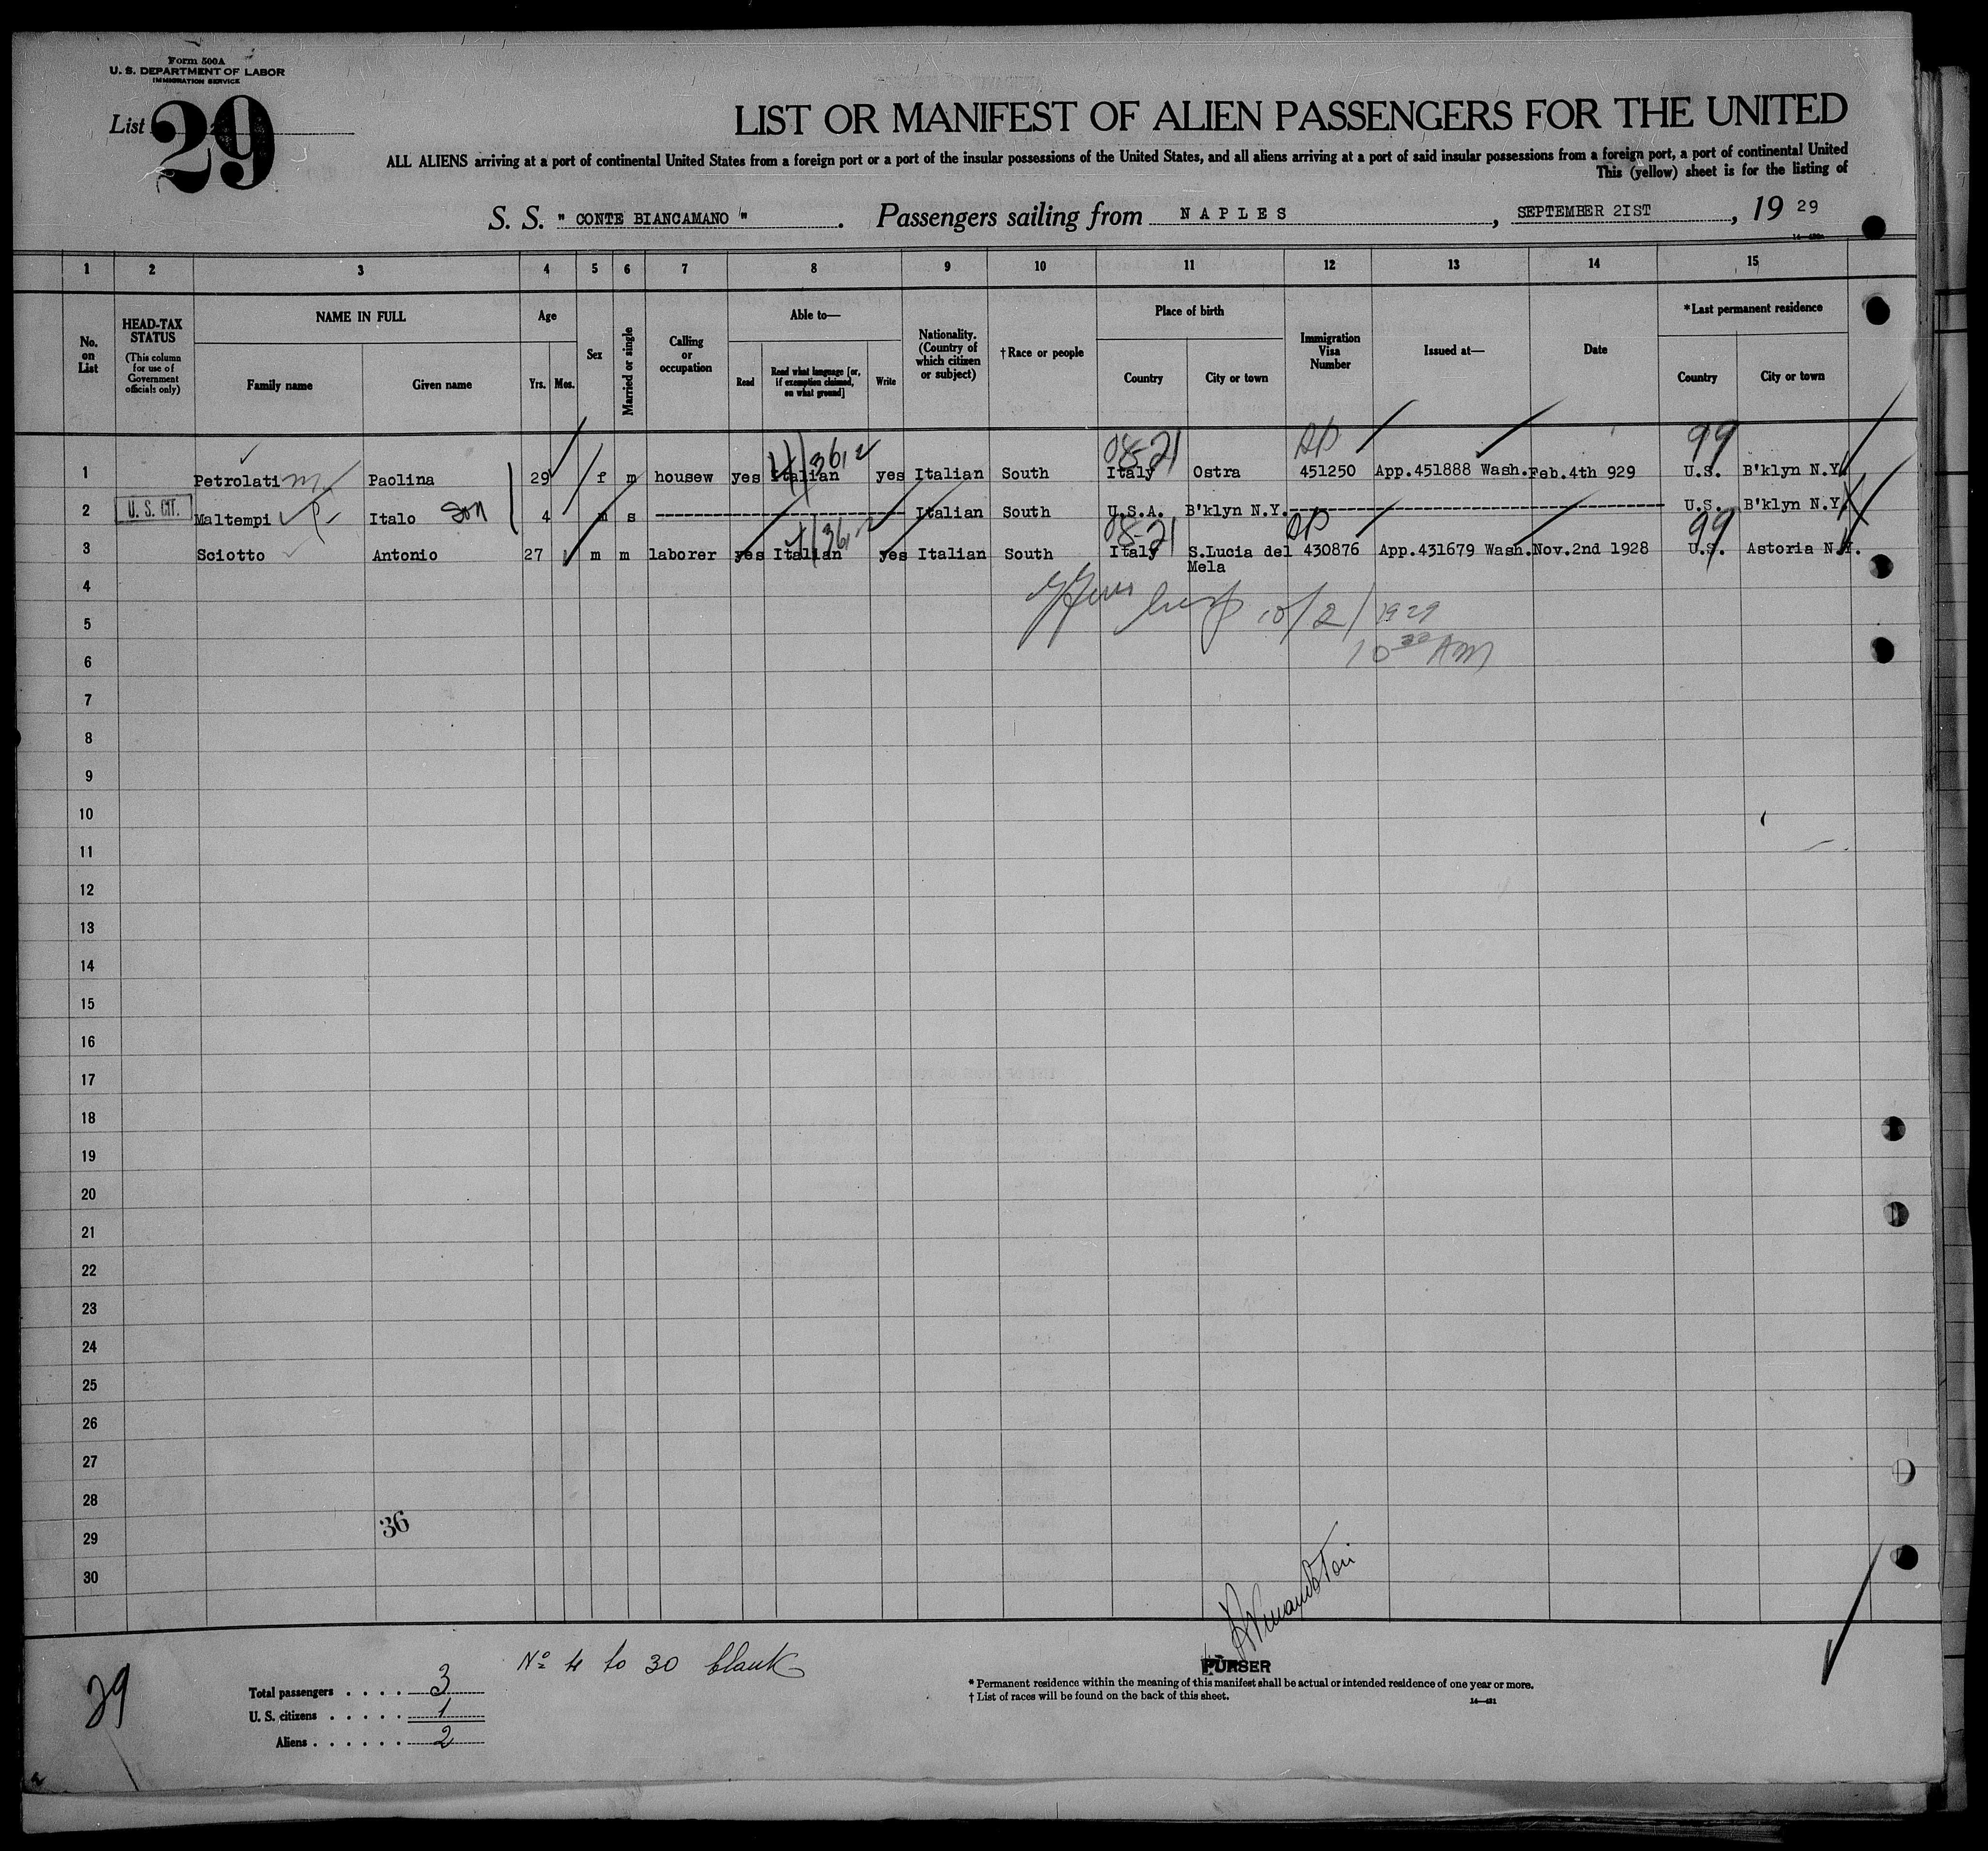 Form 500A
U. S. DEPARTMENT OF LABOR
IMMIGRATION SERVICE
List 29
LIST OR MANIFEST OF ALIEN PASSENGERS FOR THE UNITED
ALL ALIENS arriving at a port of continental United States from a foreign port or a port of the insular possessions of the United States, and all aliens arriving at a port of said insular possessions from a foreign port, a port of continental United
This (yellow) sheet is for the listing of
S. S. " CONTE BIANCAMANO ". Passengers sailing from NAPLES, SEPTEMBER 2IST, 19 29
1 2 3 4 5 6 7 8 9 10 11 12 13 14 15
No. on List
HEAD-TAX STATUS
(This column for use of Government officials only)
NAME IN FULL
Family name Given name
Age
Yrs. Mos.
Sex
Married or single
Calling or occupation
Able to—
Read
Read what language [or, if exemption claimed, on what ground]
Write
Nationality. (Country of which citizen or subject)
† Race or people
Place of birth
Country City or town
Immigration Visa Number
Issued at—
Date
* Last permanent residence
Country City or town
08-21 99
1 Petrolati Paolina 29 f m housew yes Italian yes Italian South Italy Ostra 451250 App.451888 Wash. Feb.4th 929 U.S. B'klyn N.Y.
2 U. S. CIT. Maltempi Italo son 4 m s Italian South U.S.A. B'klyn N.Y. U.S. B'klyn N.Y.
08-21 99
3 Sciotto Antonio 27 m m laborer yes Italian yes Italian South Italy S.Lucia del Mela 430876 App.431679 Wash. Nov.2nd 1928 U.S. Astoria N.Y.
4
10/2/1929
5
6
10 AM
7
8
9
10
11
12
13
14
15
16
17
18
19
20
21
22
23
24
25
26
27
28
29
36
30
Nº 4 to 30 blank
PURSER
29
Total passengers . . . . 3
U. S. citizens . . . . . 1
Aliens . . . . . . 2
* Permanent residence within the meaning of this manifest shall be actual or intended residence of one year or more.
† List of races will be found on the back of this sheet.